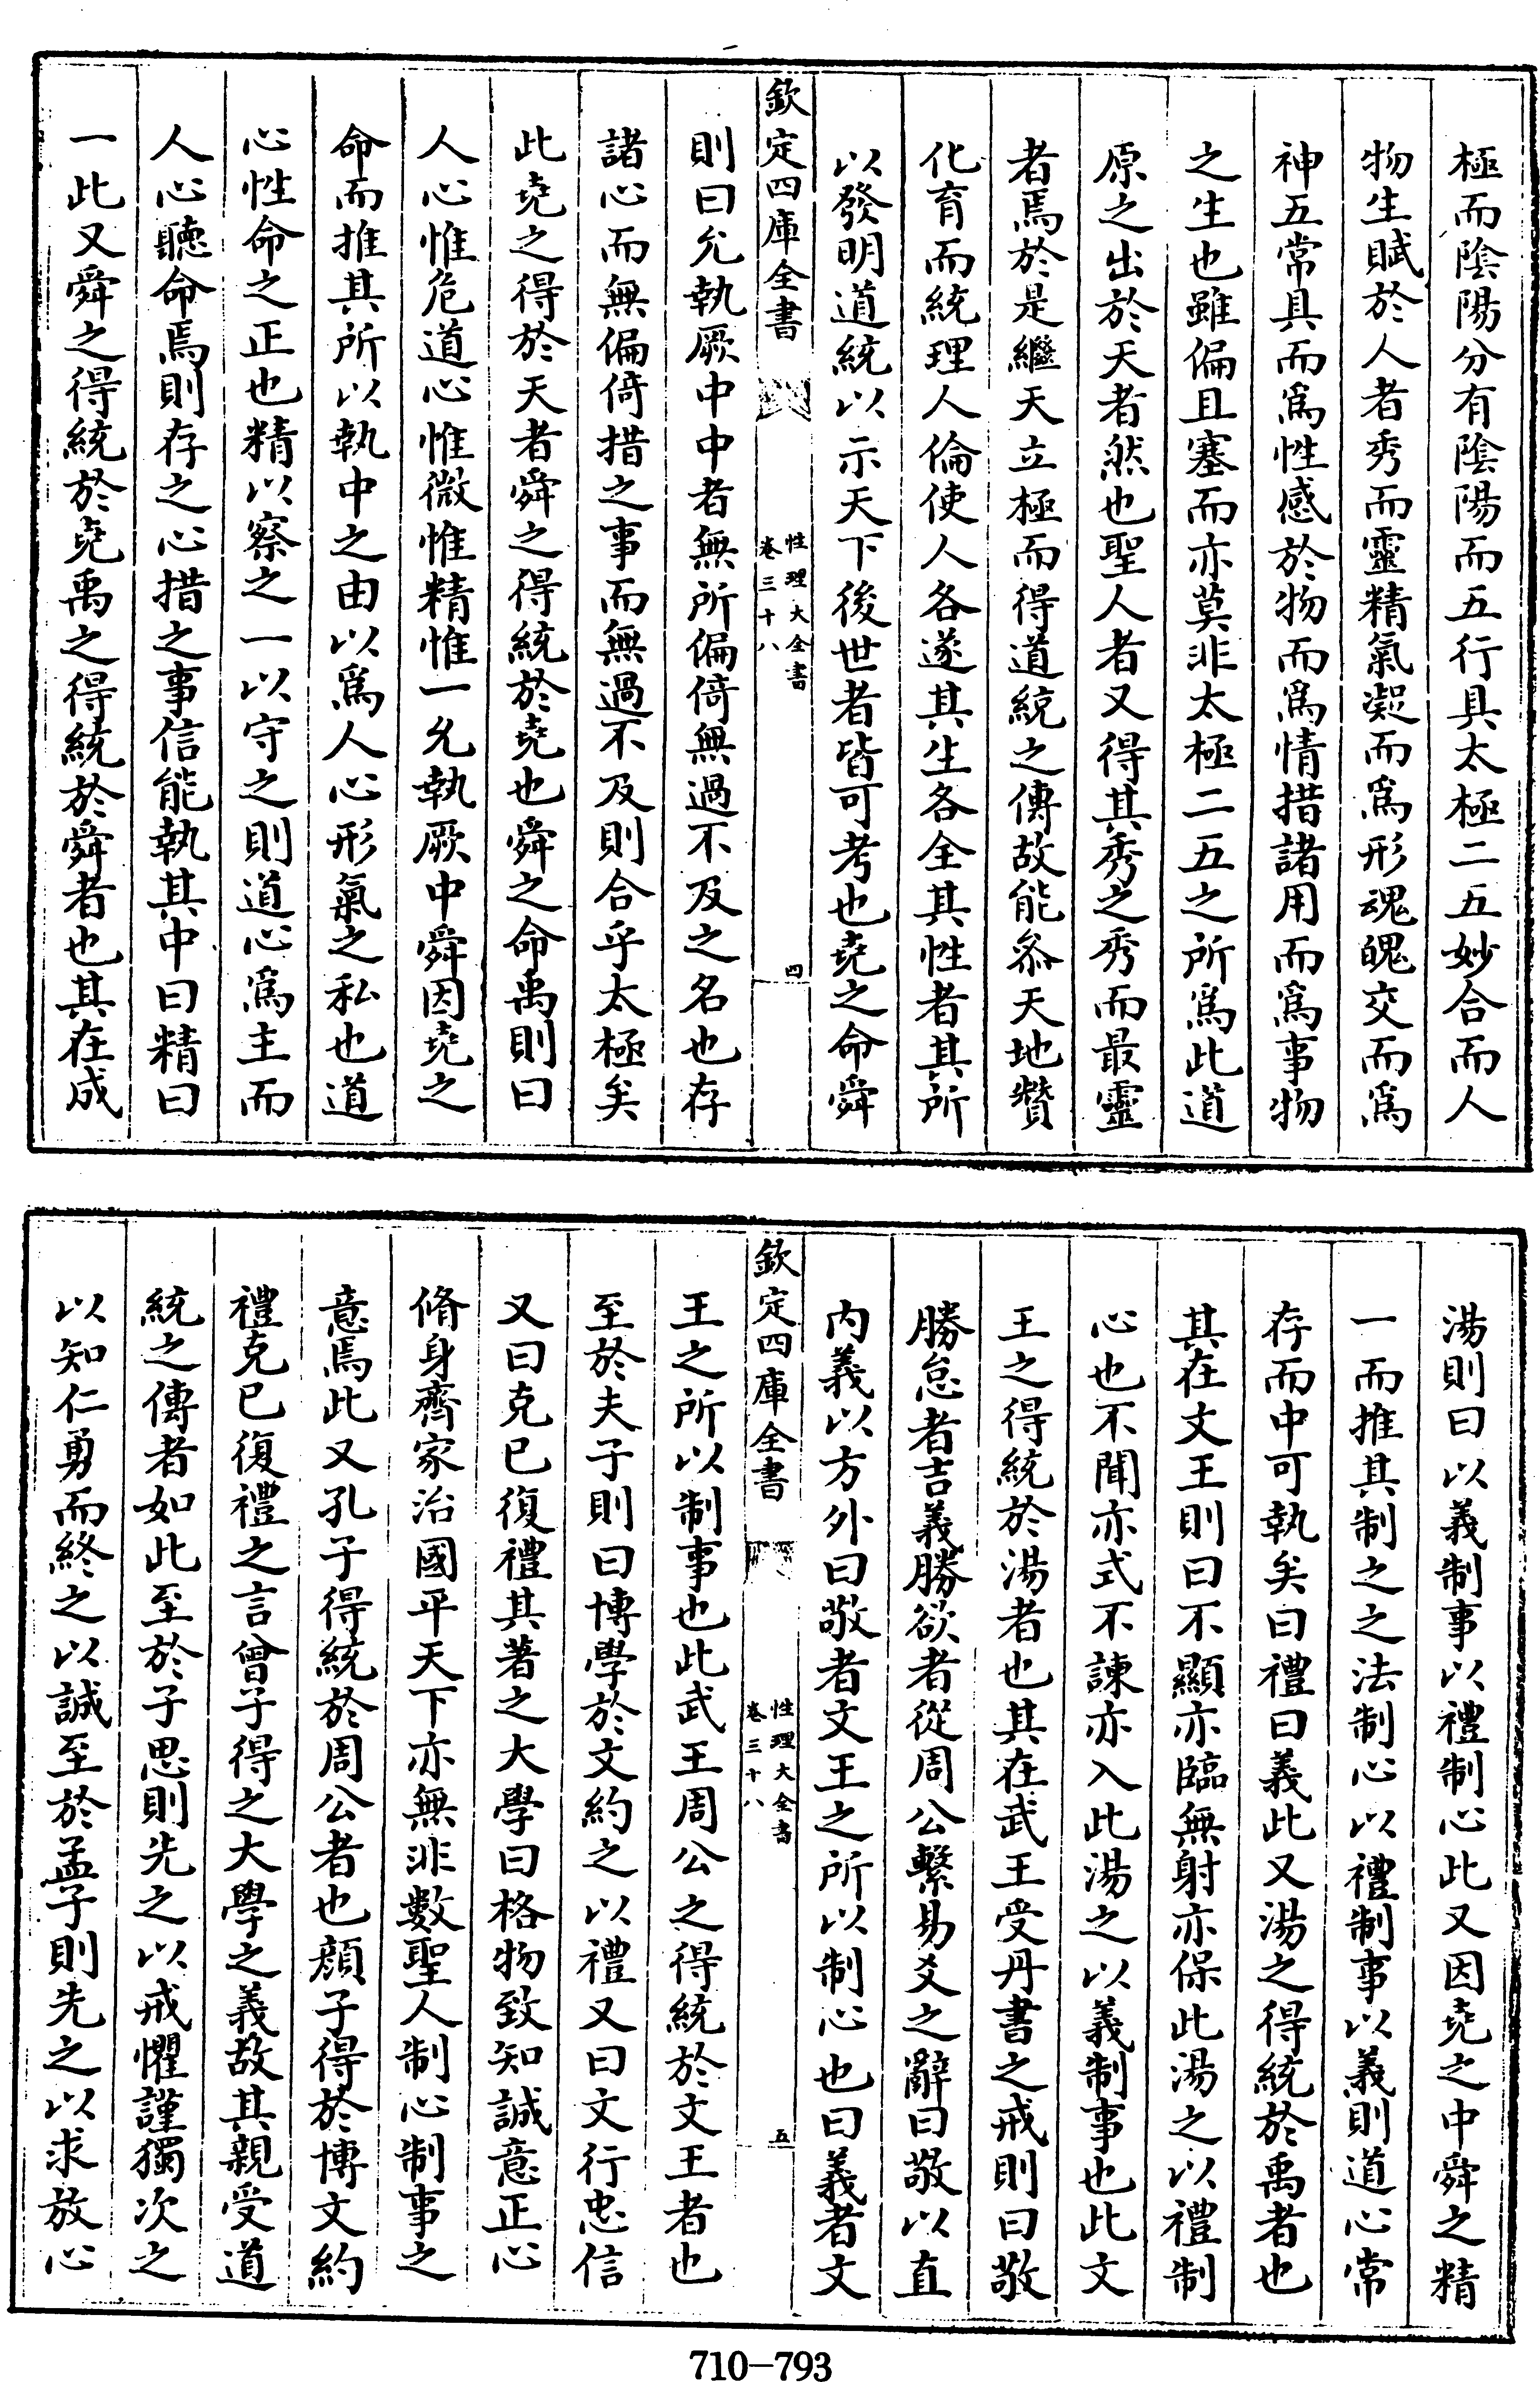 極而陰陽分有陰陽而五行具太極二五妙合而人
物生賦於人者秀而靈精氣凝而爲形魂魄交而爲
神五常具而爲性感於物而爲情措諸用而爲事物
之生也雖偏且塞而亦莫非太極二五之所爲此道
原之出於天者然也聖人者又得其秀之秀而最靈
者焉於是繼天立極而得道統之傳故能叅天地贊
化育而統理人倫使人各遂其生各全其性者其所
以發明道統以示天下後世者皆可考也堯之命舜
欽定四庫全書
性理大全書
卷三十八
四
則曰允執厥中中者無所偏倚無過不及之名也存
諸心而無偏倚措之事而無過不及則合乎太極矣
此堯之得於天者舜之得統於堯也舜之命禹則曰
人心惟危道心惟微惟精惟一允執厥中舜因堯之
命而推其所以執中之由以爲人心形氣之私也道
心性命之正也精以察之一以守之則道心爲主而
人心聽命焉則存之心措之事信能執其中曰精曰
一此又舜之得統於堯禹之得統於舜者也其在成
湯則曰以義制事以禮制心此又因堯之中舜之精
一而推其制之之法制心以禮制事以義則道心常
存而中可執矣曰禮曰義此又湯之得統於禹者也
其在文王則曰不顯亦臨無射亦保此湯之以禮制
心也不聞亦式不諫亦入此湯之以義制事也此文
王之得統於湯者也其在武王受丹書之戒則曰敬
勝怠者吉義勝欲者從周公繫易爻之辭曰敬以直
内義以方外曰敬者文王之所以制心也曰義者文
欽定四庫全書
性理大全書
卷三十八
五
王之所以制事也此武王周公之得統於文王者也
至於夫子則曰博學於文約之以禮又曰文行忠信
又曰克已復禮其著之大學曰格物致知誠意正心
脩身齊家治國平天下亦無非數聖人制心制事之
意焉此又孔子得統於周公者也顔子得於博文約
禮克已復禮之言曾子得之大學之義故其親受道
統之傳者如此至於子思則先之以戒懼謹獨次之
以知仁勇而終之以誠至於孟子則先之以求放心
710-793